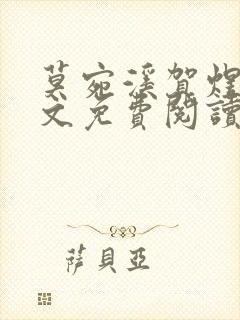 莫宛溪賀煜
文免費閱讀
薩貝亞